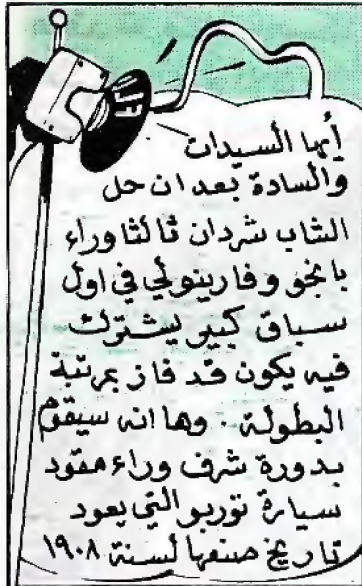 أيها السيدات
والسادة بعد ان حل
الشاب شردان ثالثا وراء
بانجو وفارينولي في اول
سباق كبير يشترك
فيه يكون قد فاز بمرتبة
البطولة . وها انه سيقوم
بدورة شرف وراء مقود
سيارة توربو التي يعود
تاريخ صنعها لسنة ١٩٠٨